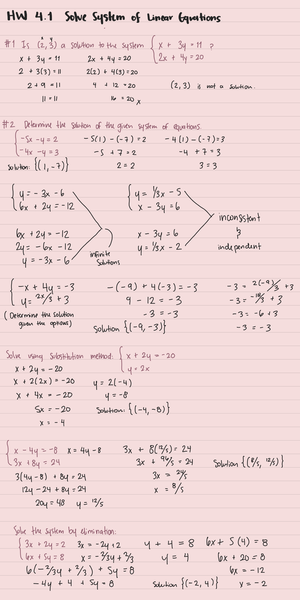 HW 4.1 Solve System of Linear Equations
#1 Is (2,3) a solution to the system { x + 3y = 11 ?
2x + 4y = 20
x + 3y = 11 2x + 4y = 20
2 + 3(3) = 11 2(2) + 4(3) = 20
2 + 9 = 11 4 + 12 = 20 (2,3) is not a solution.
11 = 11 16 = 20 x
#2 Determine the solution of the given system of equations.
{ -5x - y = 2 -5(1) - (-7) = 2 -4(1) - (-7) = 3
-4x - y = 3 -5 + 7 = 2 -4 + 7 = 3
Solution: {(1, -7)} 2 = 2 3 = 3
{ y = -3x - 6 { y = 1/3x - 5
6x + 2y = -12 x - 3y = 6
inconsistent
&
independent
6x + 2y = -12 x - 3y = 6
2y = -6x - 12 y = 1/3x - 2
y = -3x - 6
infinite solutions
{ -x + 4y = -3 -(-9) + 4(-3) = -3 -3 = 2(-9)/3 + 3
y = 2x/3 + 3 9 - 12 = -3 -3 = -18/3 + 3
(Determine the solution -3 = -3 -3 = -6 + 3
given the options) Solution {(-9, -3)} -3 = -3
Solve using substitution method: { x + 2y = -20
y = 2x
x + 2y = -20 y = 2(-4)
x + 2(2x) = -20 y = -8
x + 4x = -20 Solution: {(-4, -8)}
5x = -20
x = -4
{ x - 4y = -8 x = 4y - 8 3x + 8(12/5) = 24
3x + 8y = 24 3x + 96/5 = 24 Solution {(8/5, 12/5)}
3(4y - 8) + 8y = 24 3x = 24/5
12y - 24 + 8y = 24 x = 8/5
20y = 48 y = 12/5
Solve the system by elimination:
{ 3x + 2y = 2 3x = -2y + 2 y + 4 = 8 6x + 5(4) = 8
6x + 5y = 8 x = -2/3y + 2/3 y = 4 6x + 20 = 8
6(-2/3y + 2/3) + 5y = 8 6x = -12
-4y + 4 + 5y = 8 Solution {(-2, 4)} x = -2